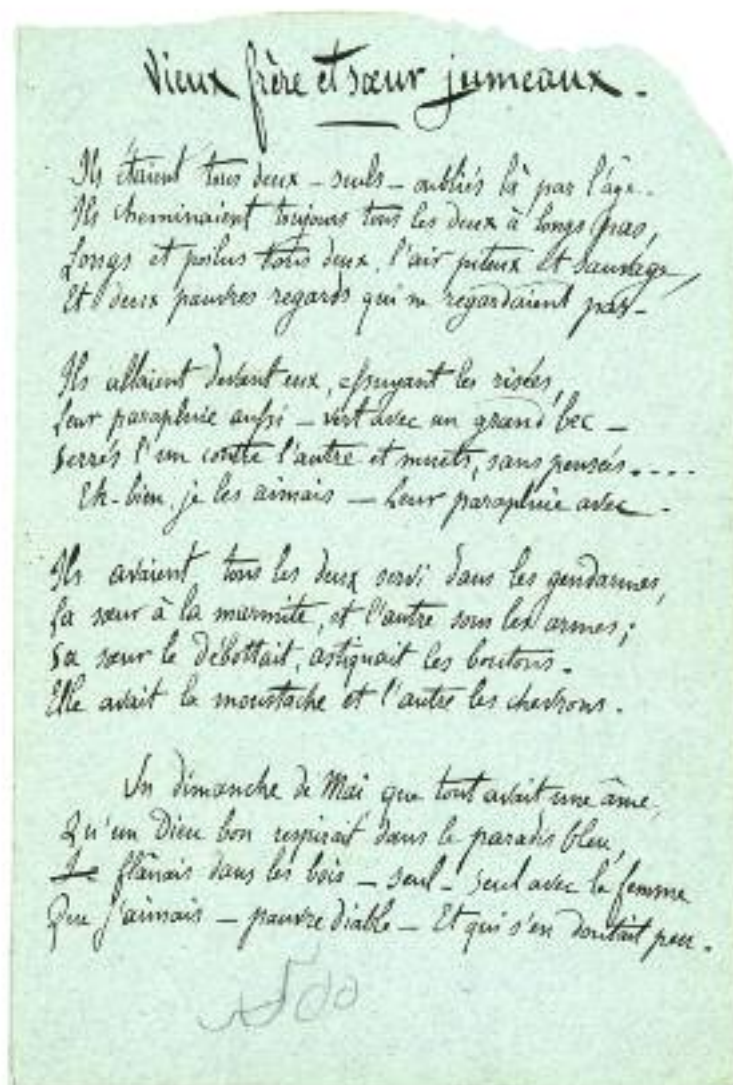 Vieux frère et sœur jumeaux.
Ils étaient tous deux – seuls – oubliés là par l'âge.
Ils cheminaient toujours tous les deux à longs pas,
Longs et poilus tous deux, l'air piteux et sauvage,
Et deux pauvres regards qui ne regardaient pas –
Ils allaient devant eux, essuyant les risées,
Leur parapluie aussi – vert avec un grand bec –
Serrés l'un contre l'autre et muets, sans pensées....
Eh-bien, je les aimais – Leur parapluie avec –
Ils avaient tous les deux servi dans les gendarmes,
La sœur à la marmite, et l'autre sous les armes;
Sa sœur le débottait, astiquait les boutons.
Elle avait la moustache et l'autre les chevrons.
Un dimanche de Mai que tout avait une âme,
Qu'un Dieu bon respirait dans le paradis bleu,
Je flânais dans les bois – seul – seul avec la femme
Que j'aimais – pauvre diable – Et qui s'en doutait peu.